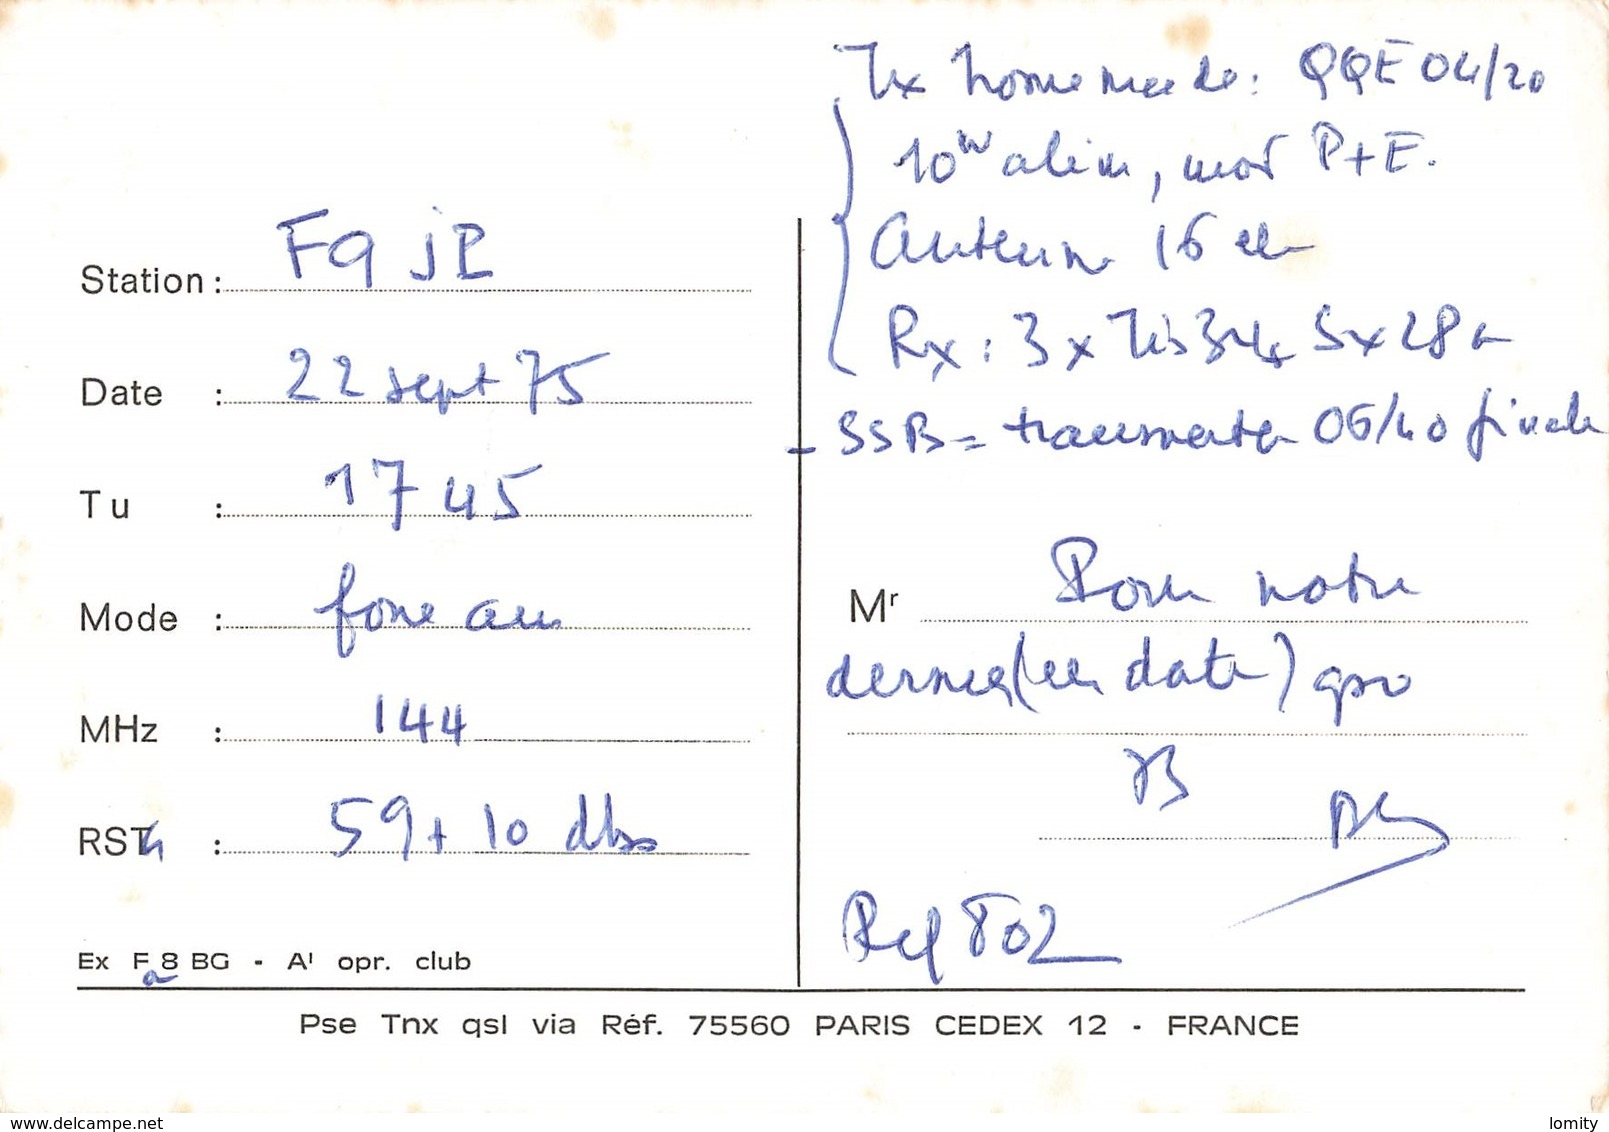 Tx home made : QQE 04/20
10W alim, mod P+E.
Antenne 16 el
Rx : 3 x Tis34 5x28
- SSB = transverter 06/40 finale
Station : F9JE
Date : 22 sept 75
Tu : 1745
Mode : fone am
MHz : 144
RST : 59+10 dbs
Mr Pour notre
dernier (en date) qso
73
Ref 802
Ex Fa8 BG - A1 opr. club
Pse Tnx qsl via Réf. 75560 PARIS CEDEX 12 - FRANCE
www.delcampe.net
lomity